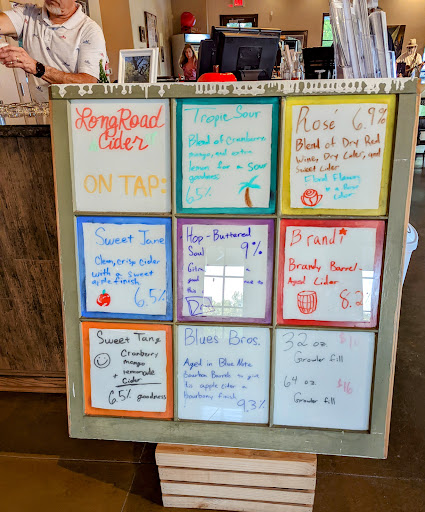 LongRoad
Cider
ON TAP:
Tropic Sour
Blend of Cranberry
mango, and extra
lemon for a sour
goodness
6.5%
Rosé 6.9%
Blend of Dry Red
Wine, Dry Cider, and
Sweet Cider
Sweet Jane
Clean, crisp cider
with a sweet
apple finish
6.5%
Hop-Buttered
Soul 9%
good
this
Brandi
Brandy Barrel
Aged Cider
8.2
Sweet Tang
Cranberry
mango
+ lemonade
Cider
6.5% goodness
Blues Bros.
Aged in Blue Note
Bourbon Barrels to give
his apple cider a
bourbony finish
9.3%
32 oz
Growler fill
64 oz $16
Growler fill